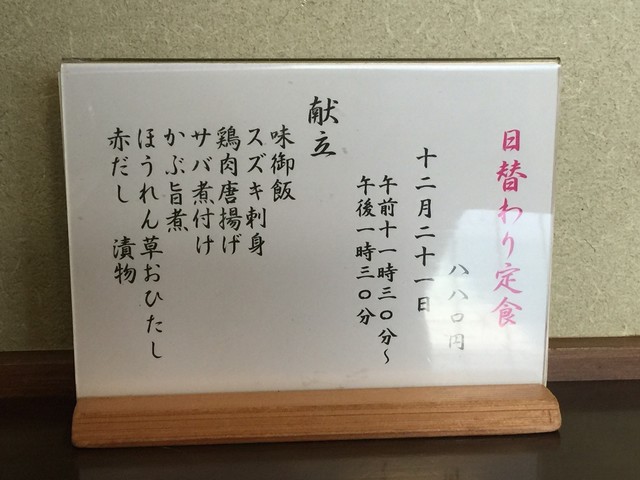 日替わり定食
八八〇円
十二月二十一日
午前十一時三〇分～
午後一時三〇分
献立
味御飯
スズキ刺身
鶏肉唐揚げ
サバ煮付け
かぶ旨煮
ほうれん草おひたし
赤だし　漬物